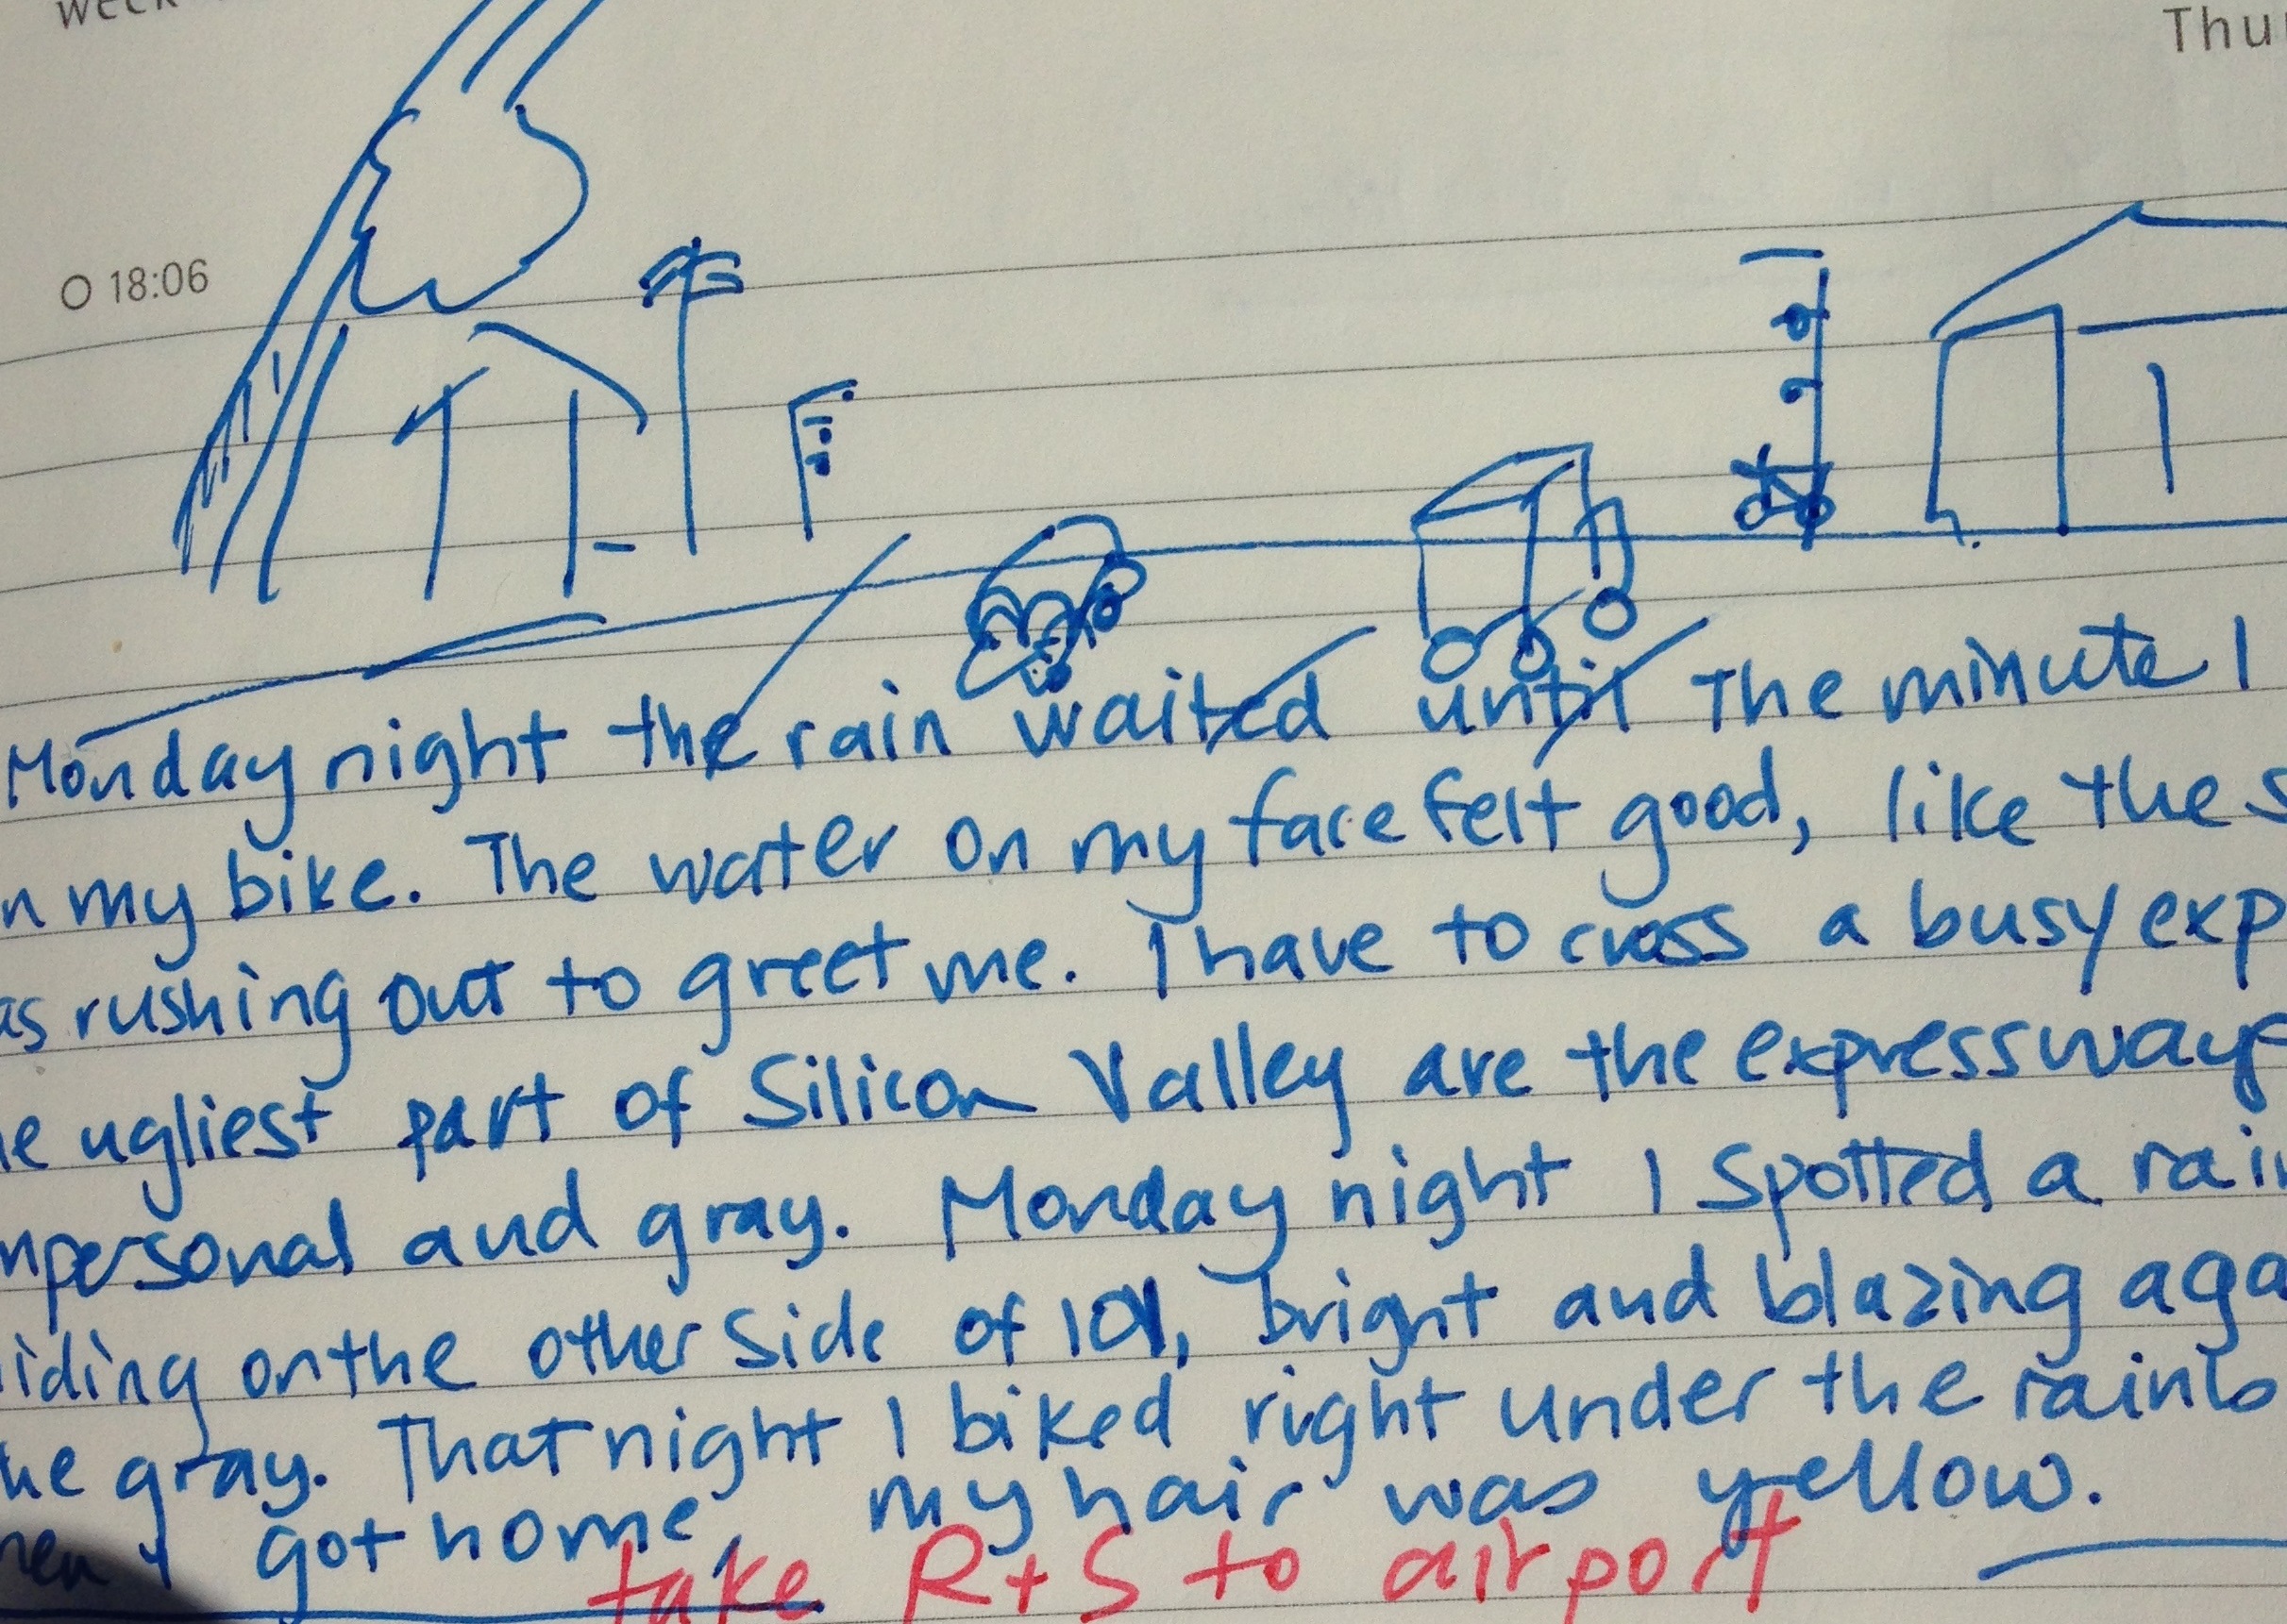 week
Thu
18:06
Monday night the rain waited until the minute I
n my bike. The water on my face felt good, like the s
as rushing out to greet me. I have to cross a busy exp
he ugliest part of Silicon Valley are the expressways
mpersonal and gray. Monday night I spotted a rain
iding on the other side of 101, bright and blazing aga
he gray. That night I biked right under the rainbo
hen I got home, my hair was yellow.
take R+S to airport